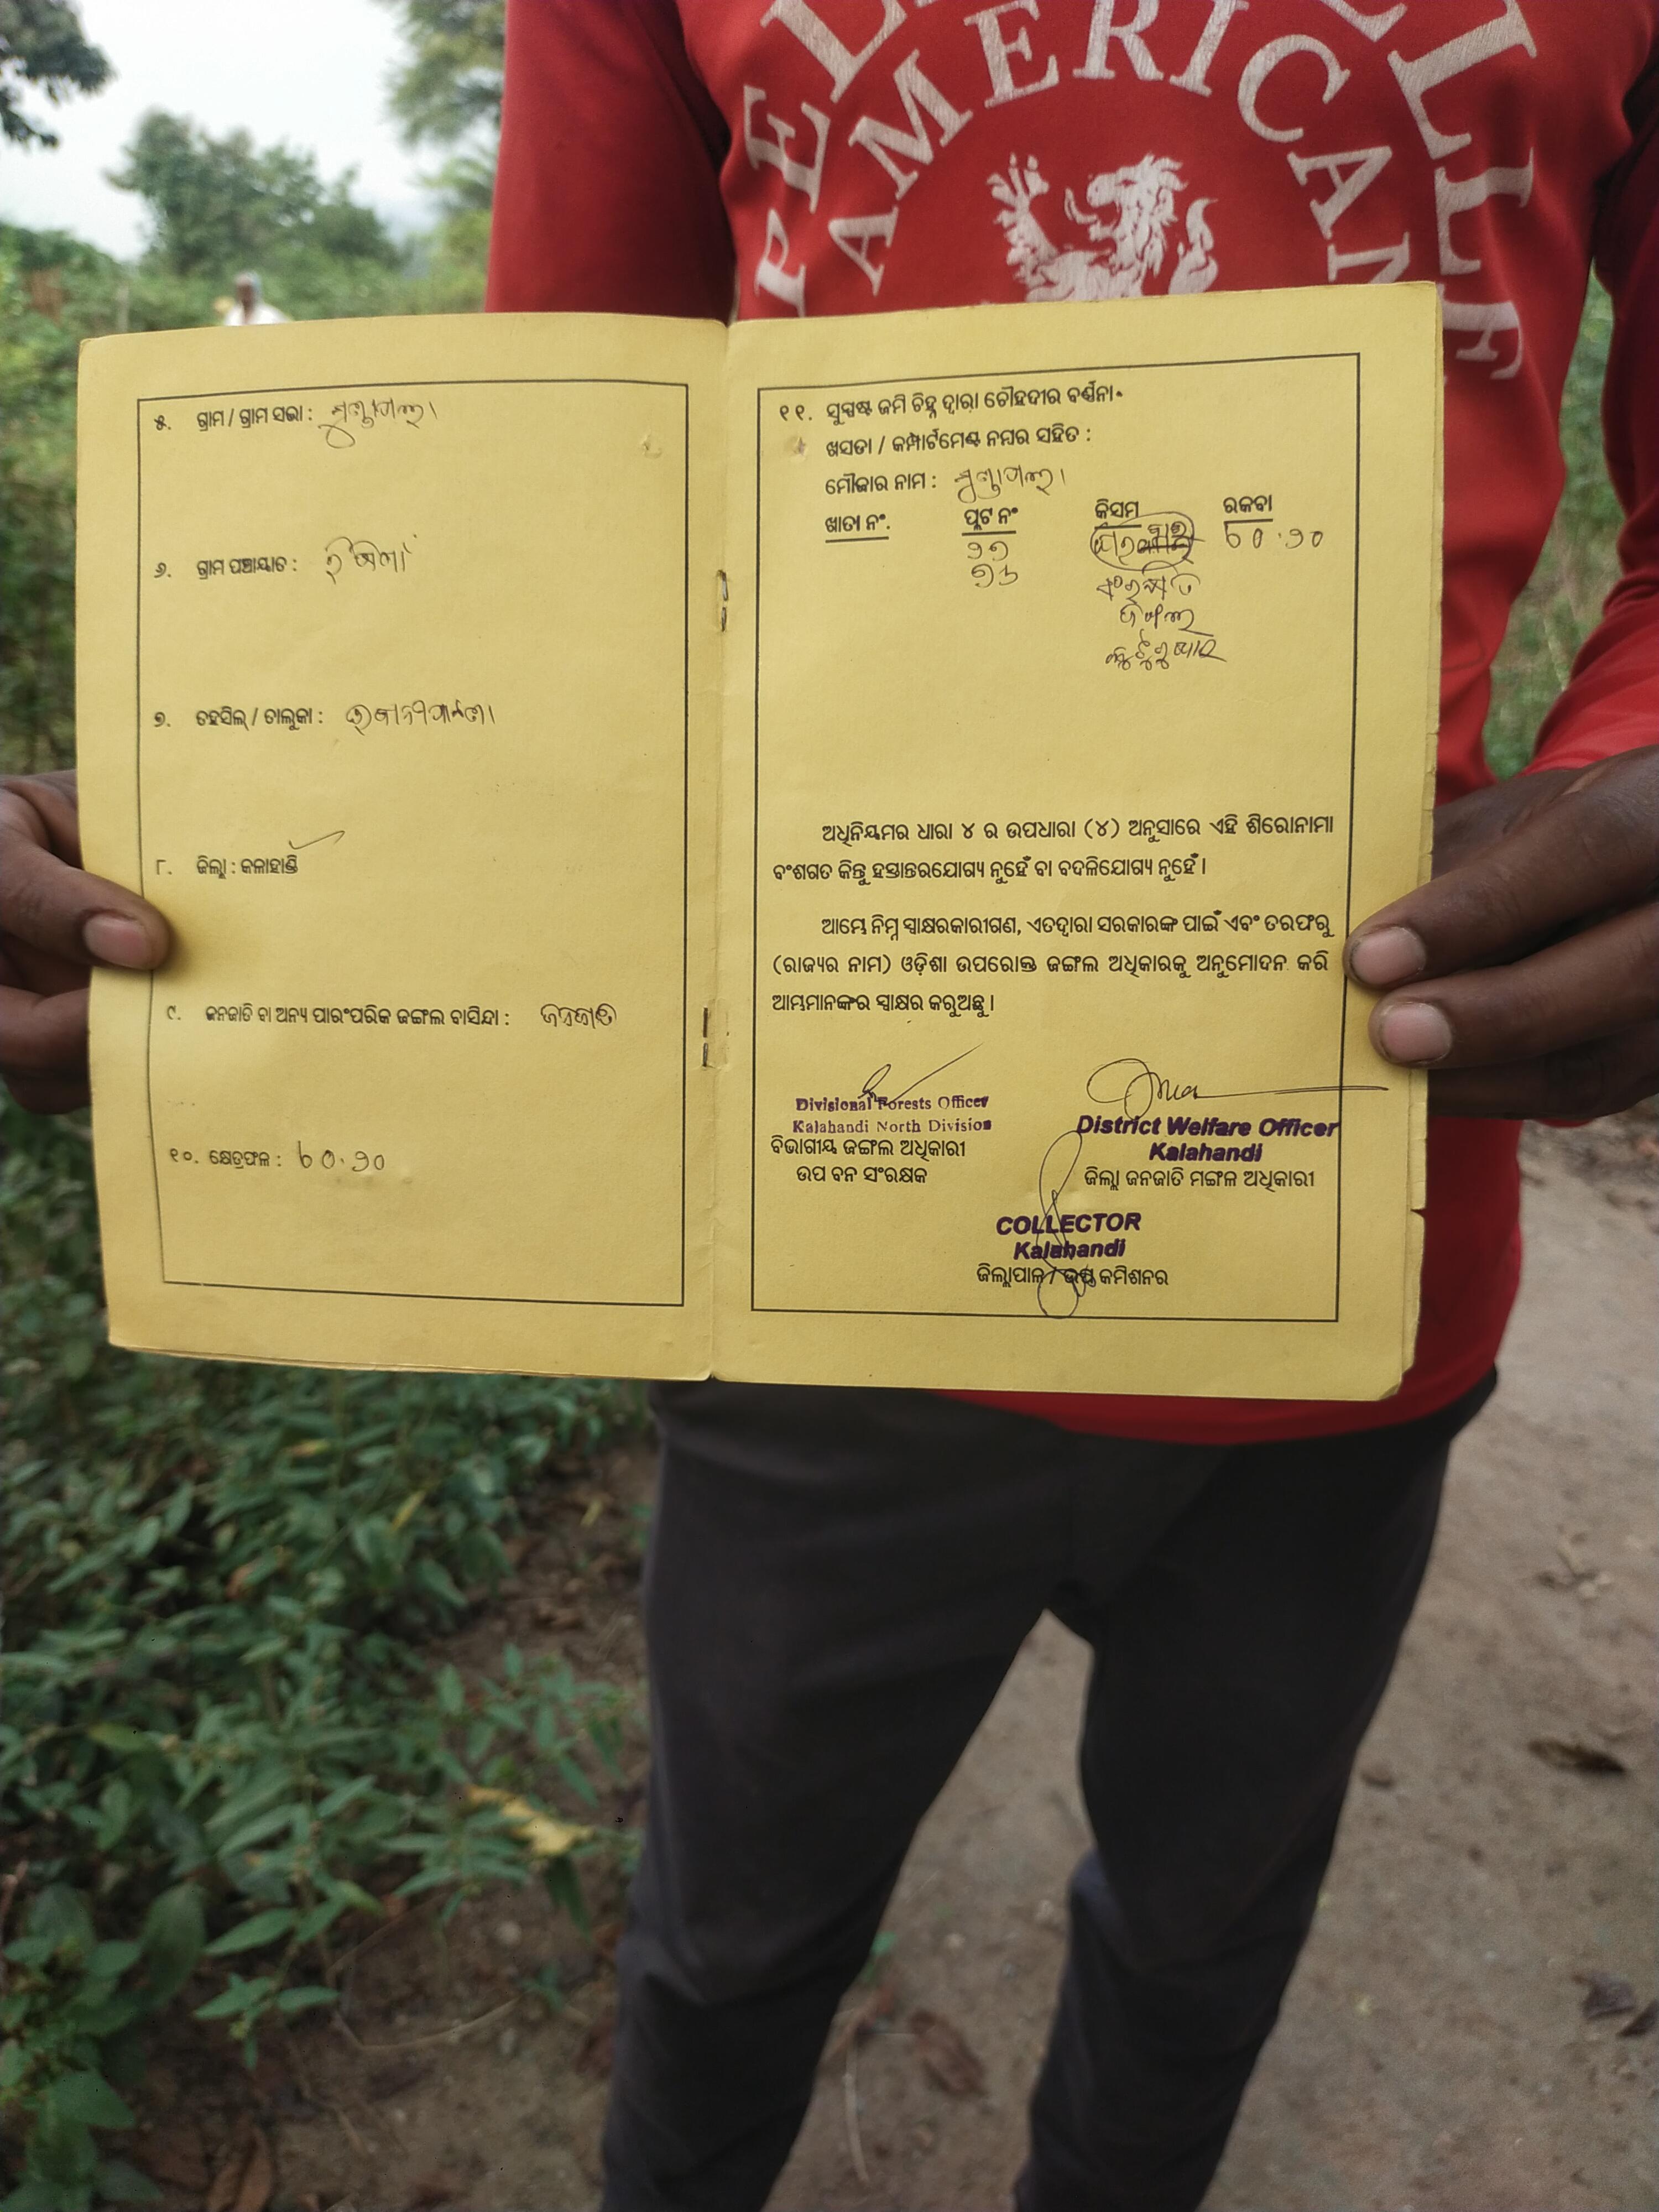 AMERICAN
୫. ଗ୍ରାମ / ଗ୍ରାମ ସଭା :
୬. ଗ୍ରାମ ପଞ୍ଚାୟାତ :
୭. ତହସିଲ୍ / ତାଲୁକା :
୮. ଜିଲ୍ଲା : କଳାହାଣ୍ଡି
୯. ଜନଜାତି ବା ଅନ୍ୟ ପାରଂପରିକ ଜଙ୍ଗଲ ବାସିନ୍ଦା : ଜନଜାତି
୧୦. କ୍ଷେତ୍ରଫଳ : ୭୦.୨୦
୧୧. ସୁସ୍ପଷ୍ଟ ଜମି ଚିହ୍ନ ଦ୍ୱାରା ଚୌହଦୀର ବର୍ଣ୍ଣନା
ଖସଡା / କମ୍ପାର୍ଟମେଣ୍ଟ ନମ୍ବର ସହିତ :
ମୌଜାର ନାମ :
ଖାତା ନଂ. ପ୍ଲଟ ନଂ କିସମ ରକବା
ସଂରକ୍ଷିତ
ଜଙ୍ଗଲ
ଅଧିନିୟମର ଧାରା ୪ ର ଉପଧାରା (୪) ଅନୁସାରେ ଏହି ଶିରୋନାମା
ବଂଶଗତ କିନ୍ତୁ ହସ୍ତାନ୍ତରଯୋଗ୍ୟ ନୁହେଁ ବା ବଦଳିଯୋଗ୍ୟ ନୁହେଁ ।
ଆମ୍ଭେ ନିମ୍ନ ସ୍ୱାକ୍ଷରକାରୀଗଣ, ଏତଦ୍ୱାରା ସରକାରଙ୍କ ପାଇଁ ଏବଂ ତରଫରୁ
(ରାଜ୍ୟର ନାମ) ଓଡ଼ିଶା ଉପରୋକ୍ତ ଜଙ୍ଗଲ ଅଧିକାରକୁ ଅନୁମୋଦନ କରି
ଆମ୍ଭମାନଙ୍କର ସ୍ୱାକ୍ଷର କରୁଅଛୁ ।
Divisional Forests Officer
Kalahandi North Division
ବିଭାଗୀୟ ଜଙ୍ଗଲ ଅଧିକାରୀ
ଉପ ବନ ସଂରକ୍ଷକ
District Welfare Officer
Kalahandi
ଜିଲ୍ଲା ଜନଜାତି ମଙ୍ଗଳ ଅଧିକାରୀ
COLLECTOR
Kalahandi
ଜିଲ୍ଲାପାଳ / କମିଶନର